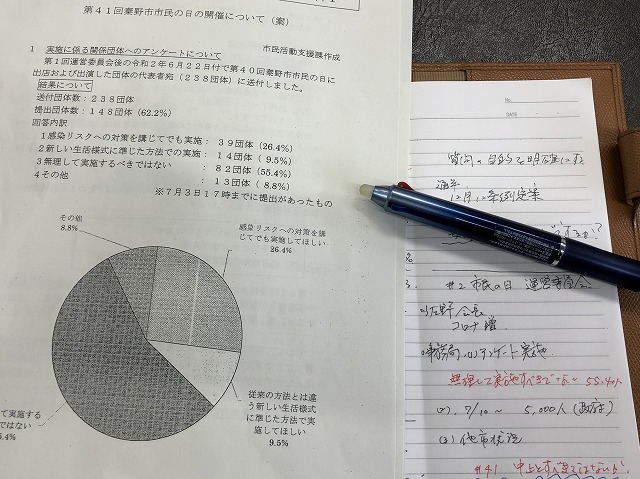 第４１回秦野市市民の日の開催について（案）
市民活動支援課作成
１ 実施に係る関係団体へのアンケートについて
第１回運営委員会後の令和２年６月２２日付で第４０回秦野市市民の日に
出店および出演した団体の代表者宛（２３８団体）に送付しました。
結果について
送付団体数：２３８団体
提出団体数：１４８団体（62.2%）
回答内訳
１感染リスクへの対策を講じてでも実施： ３９団体（26.4%）
２新しい生活様式に準じた方法での実施： １４団体（ 9.5%）
３無理して実施するべきではない ： ８２団体（55.4%）
４その他 ： １３団体（ 8.8%）
※７月３日１７時までに提出があったもの
その他
8.8%
感染リスクへの対策を講
じてでも実施してほしい
26.4%
従来の方法とは違
う新しい生活様式
に準じた方法で実
施してほしい
9.5%
て実施する
ではない
5.4%
No.
DATE
質問の目的を明確にする
12月に条例定案
#2 市民の日 運営委員会
佐野会長
コロナ増
事務局 アンケート実施
無理して実施すべきで 55.4%
(2). 7/10～ 5,000人（政府）
(3) 他市状況
#41 中止とすべきではないか